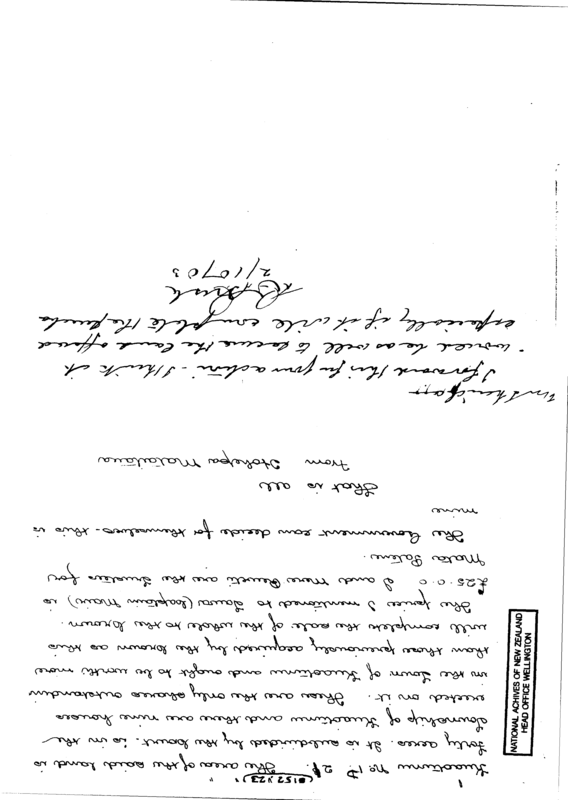 Kuaotunu No 1 D 2B. The area of the said land is
forty acres It is subdivided by the Court. is in the
Township of Kuaotunu and there are nine houses
erected on it. These are the only shares outstanding
in the Town of Kuaotunu and ought to be worth more
than those previously acquired by the Crown as this
will complete the sale of the whole to the Crown.
The price I mentioned to Tawa (Captain Mair) is
£25.0.0 I and Mere are the Trustees for
Mata Patene.
The Government can decide for themselves - this is
mine
That is all
From Hohepa Mataitaua
Mr Sheridan
I forward this for your action - I think it
would be as well to secure the land offered
especially if it will complete the
Bush
2/10/03
NATIONAL ACHIVES OF NEW ZEALAND
HEAD OFFICE WELLINGTON